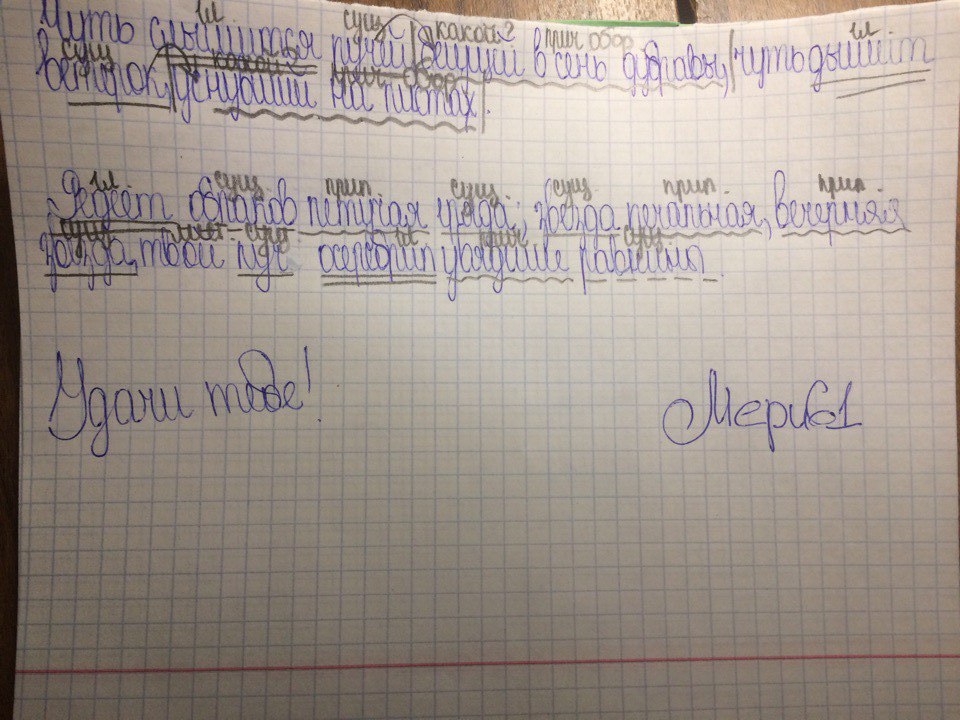 гл сущ какой? прич обор гл
Чуть слышится ручей, бегущий в сень дубравы, чуть дышит
сущ какой? прич обор
ветерок, уснувший на листах.
гл. сущ. прил. сущ. сущ. прил. прил.
Редеет облаков летучая гряда; звезда печальная, вечерняя
сущ. мест. сущ. гл. прич. сущ.
звезда, твой луч осеребрил увядшие равнины.
Удачи тебе! Мери61